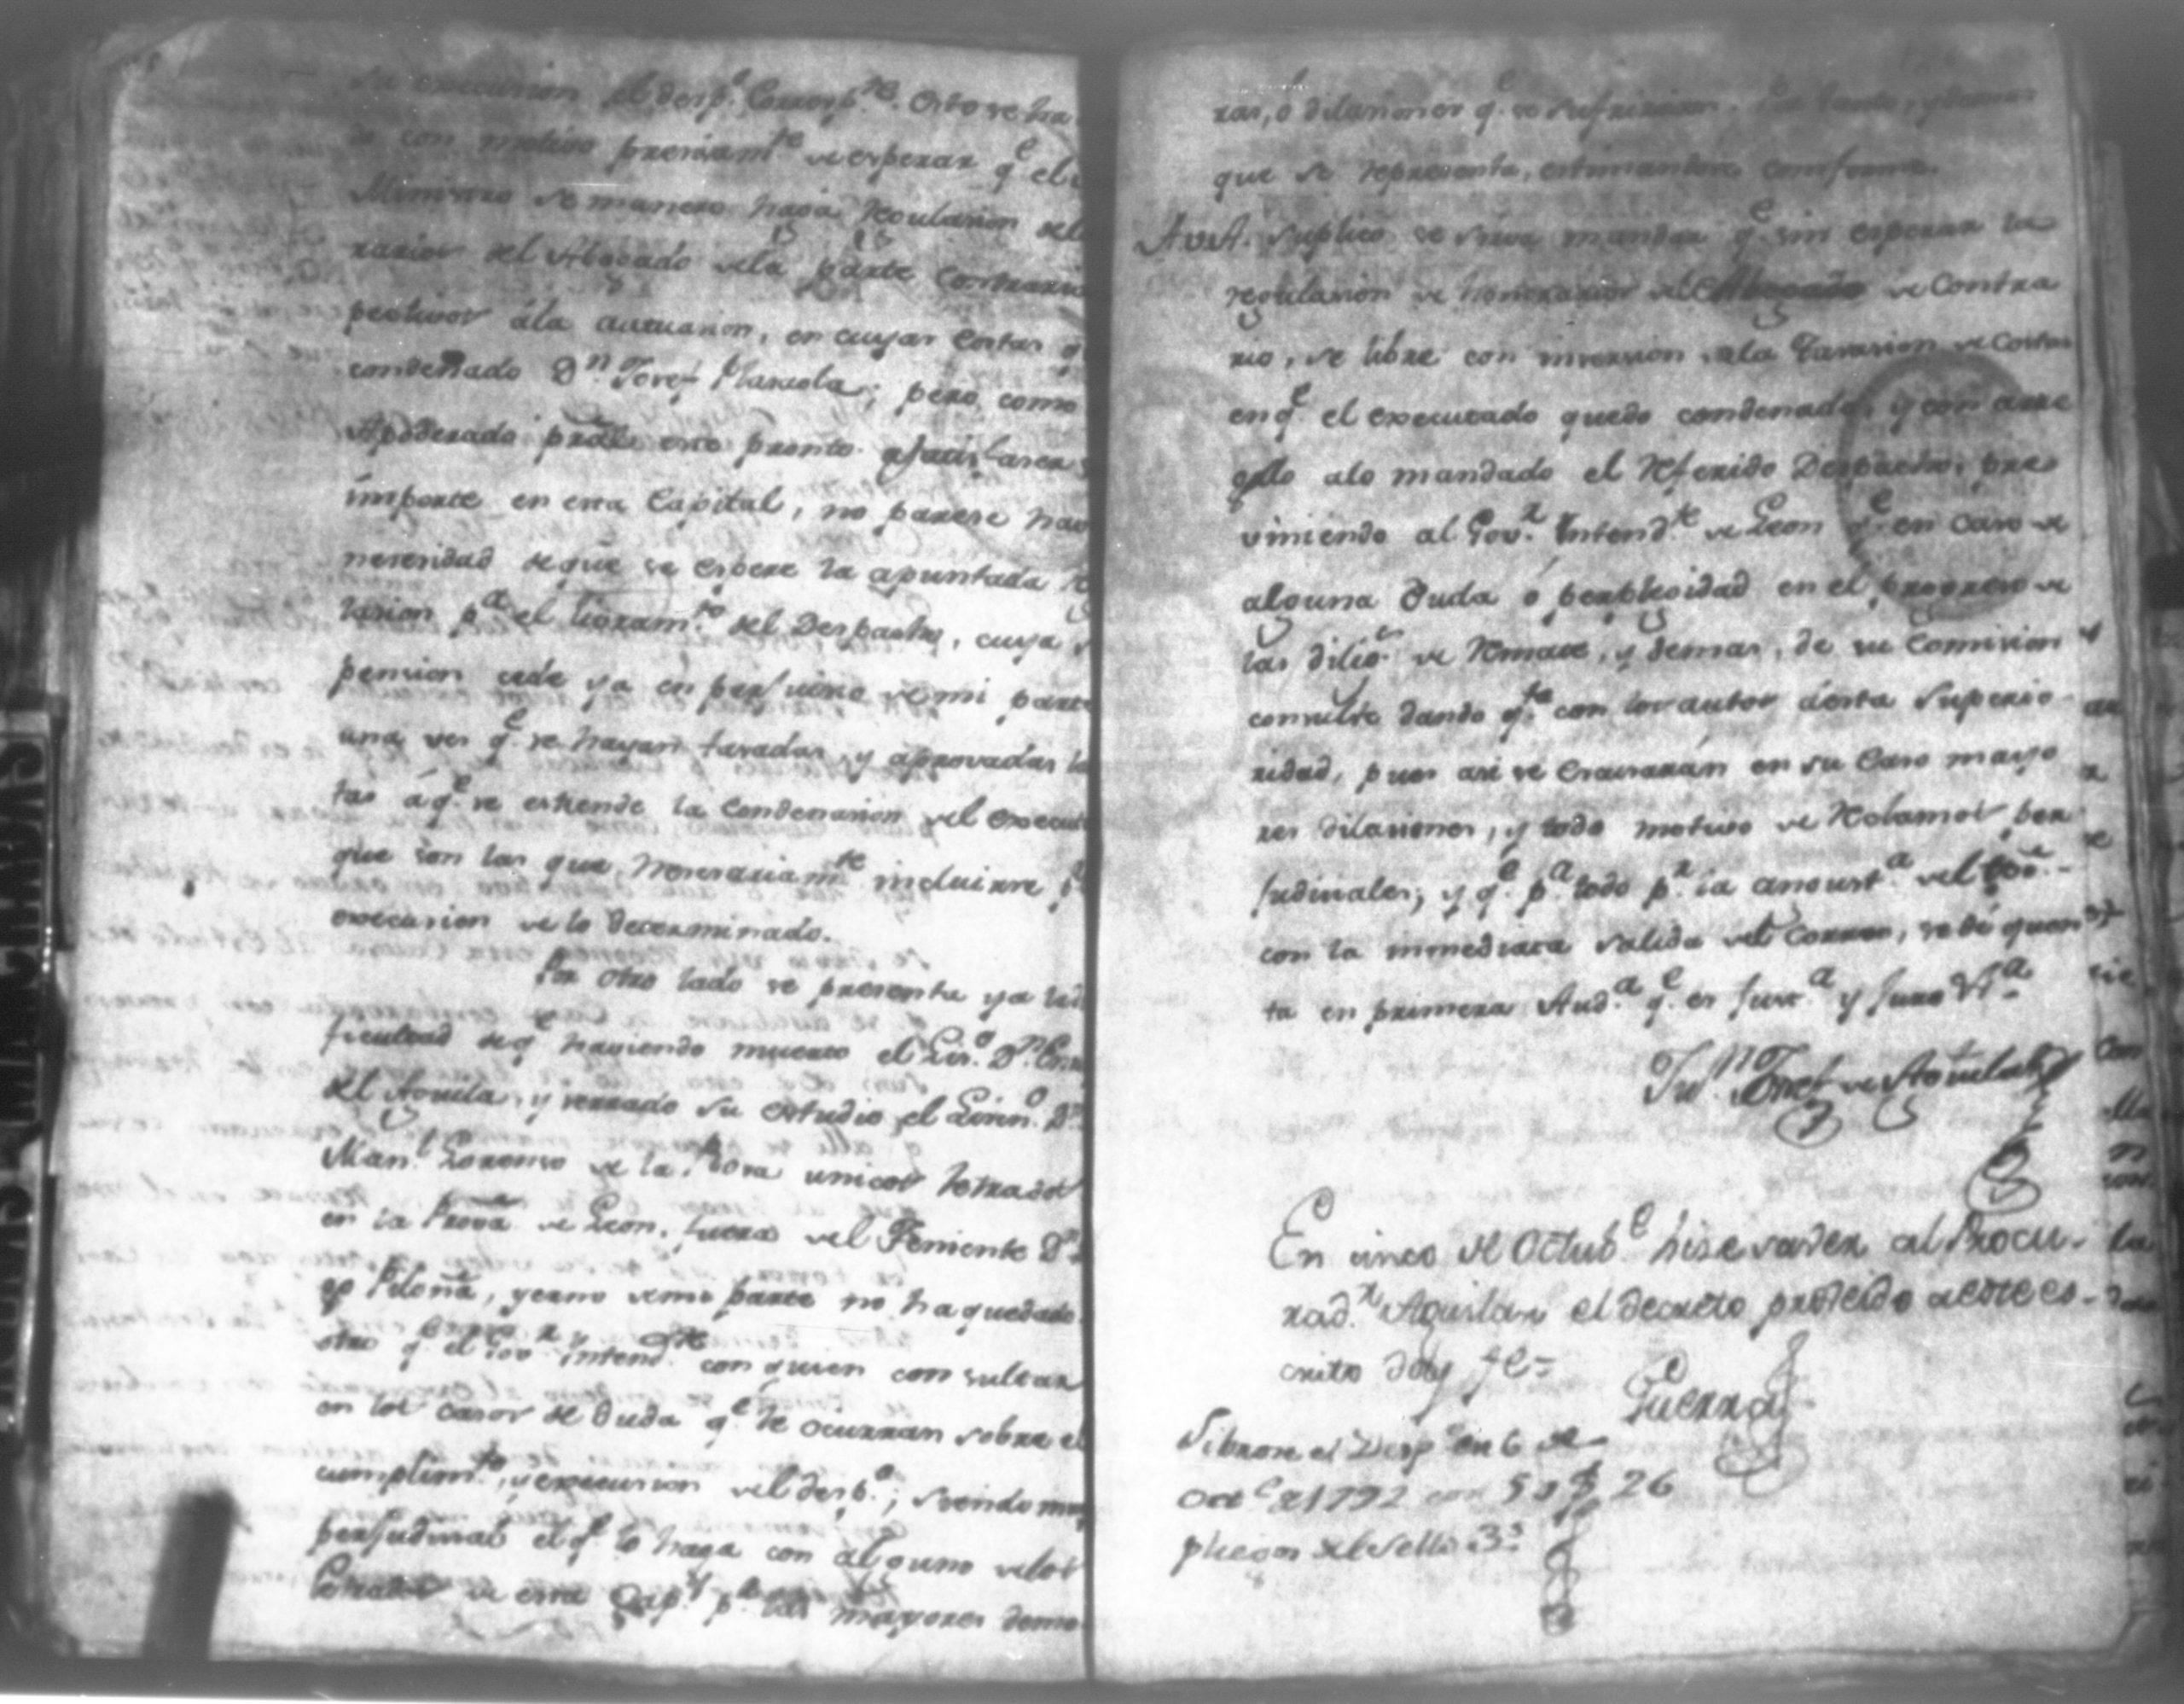 su execusion el desp.º Corresp.te Esto se ha
do con motivo presisam.te de esperar q.e el
se manero haga regulasion del
rarios del Abogado dela parte Contraria
pectivos ála actuasion, en cuyas Costas q
condenado D.n Josef Plasaola; pero como
Apoderado está pronto a satisfaser
importe en esta Capital, no parese hav
neseridad de que se espere la apuntada Re
lasion p.a el libram.to del Despacho, cuya
pension cede ya en perjuisio de mi parte
una ves q.e se hayan tasadas, y aprovadas la
tas á q.e se estiende la Condenasion del execut
que son las que nesesariam.te incluirse
execusion de lo determinado.
Por otro lado se presenta ya la di
ficultad de q.e haviendo muerto el Lis.do D.n
del Aguila, y serrado su estudio el Lisen.do D.n
Man.l Lorenso de la unicos letrados
en la Prov.a de Leon, fuera del Teniente D.n
Piloña, yerno demi parte no ha quedado
otro q.e el Gov.r Intend.te con quien consultar
en los casos de duda q.e le ocurran sobre el
cumplim.to, y execusion del desp.o; siendo muy
perjudisial el q.e lo haga con alguno delos
letrados de esta Cap.l p.r las mayores demo
ras, ó dilasiones q.e se sufririan. Por tanto, y demas
que se representa, estimandose conforme.
A V.A. Suplico se sirva mandar q.e sin esperar la
regulasion de honorarios del Abogado de Contra
rio, se libre con insersion dela Tasasion de Costas
en q.e el executado quedo condenado, y con arre
glo alo mandado el Referido Despacho, pre
viniendo al Gov.r Intend.te de Leon q.e en caso de
alguna Duda ó perplegidad en el progreso de
las dilig.s de Remate, y demas, de su Comision
consulte dando q.ta con los autos á esta Superio-
ridad, pues asi se Escusarán en su Caso mayo
res dilasiones, y todo motivo de Reclamos per
judisiales; y q.e p.a todo p.r la angust.a del
con la inmediata salida del Correo, se dé quen
ta en primera Aud.a q.e es just.a y juro V.a
Ju.n Josef de Aguilar
En cinco de Octub.e hise saver al Procu-
rad.r Aguilar el decreto proveido a este es-
crito doy fe=
Guerra
Librose el Desp.o en 6 de
Oct.e de 1792 con 26
pliegos del sello 3.º